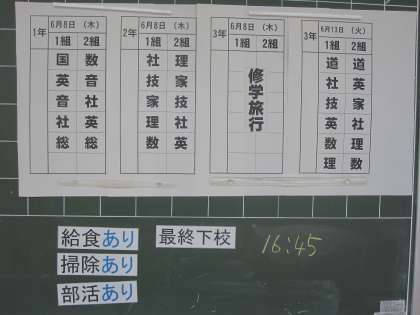 1年 6月8日(木)
1組 2組
国 数
英 音
音 社
社 英
総 総
2年 6月8日(木)
1組 2組
社 理
技 家
家 技
理 社
数 英
3年 6月8日(木)
1組 2組
修学旅行
3年 6月13日(火)
1組 2組
道 道
社 英
技 家
英 社
数 理
理 数
給食あり 最終下校 16:45
掃除あり
部活あり